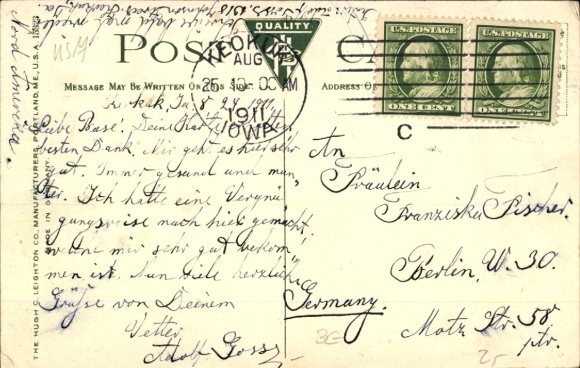 Nord Amerika.
POST
QUALITY
MESSAGE MAY BE WRITTEN ON THIS SIDE
ADDRESS
KEOKUK
AUG
25 10-00 AM
1911
IOWA
U.S. POSTAGE
ONE CENT
U.S. POSTAGE
ONE CENT
C
THE HUGH C. LEIGHTON CO., MANUFACTURERS, PORTLAND, ME., U.S.A.
MADE IN GERMANY
Keokuk, Ia, 8 24 1911.
Liebe Base! Deine Karte
besten Dank. Mir geht es hier sehr
gut. Immer gesund und mun-
ter. Ich hatte eine Vergnü-
gungsreise nach hier gemacht,
welche mir sehr gut bekom-
men ist. Nun viele herzlich
Grüsse von Deinem
Vetter
Adolf Goss
An
Fräulein
Franziska Fischer.
Berlin, W. 30.
Germany.
Motz Str. 58
ptr.